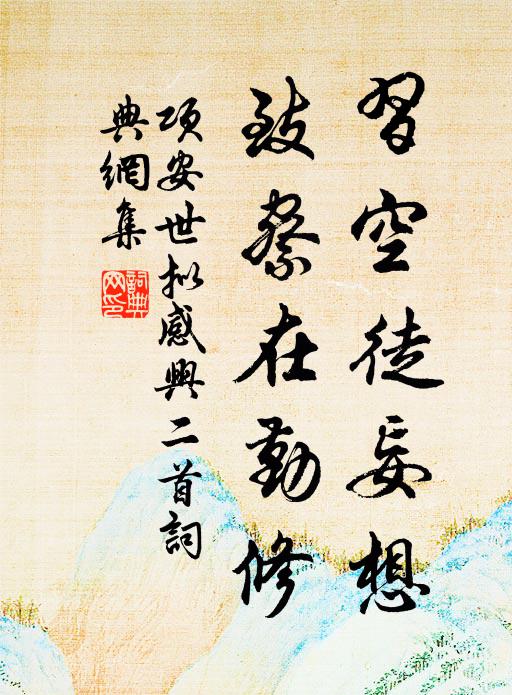 習空徒妄想
致察在勤修
項安世拟感興二首詞
典網集
詞典網印